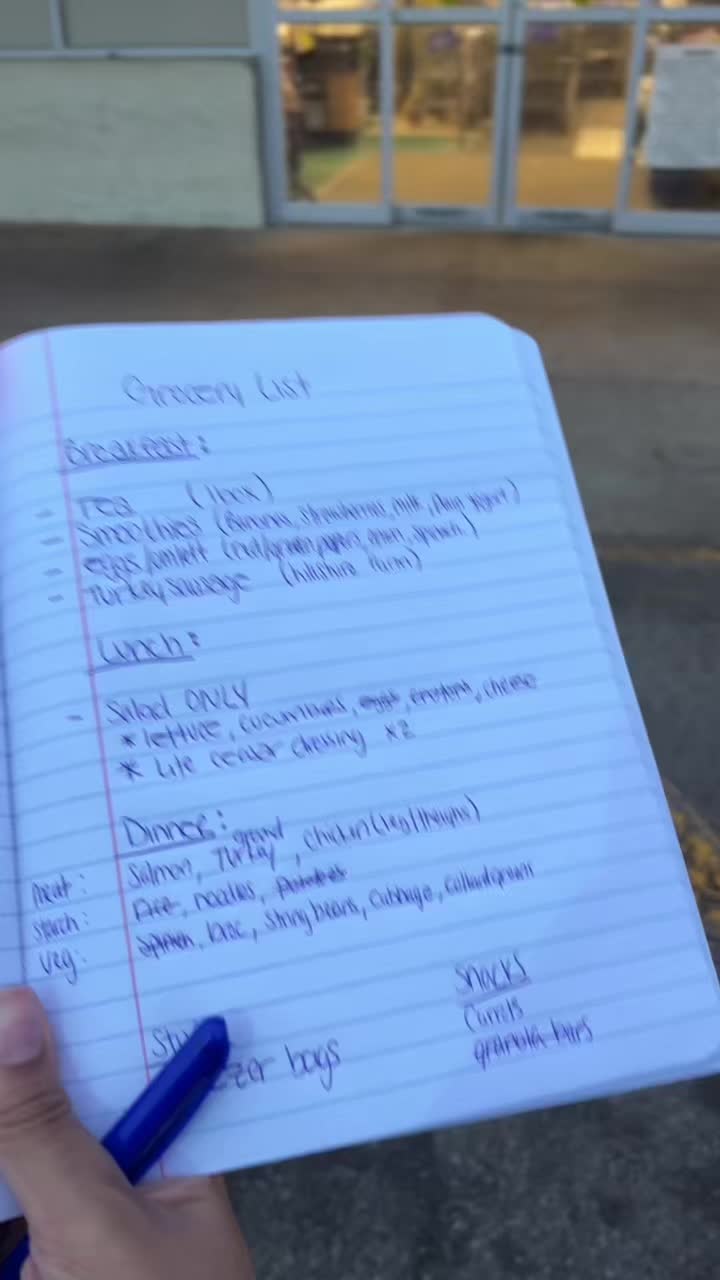 Grocery List
Breakfast:
- Tea (1 box)
- Smoothies (Banana, strawberries, milk, yogurt)
- eggs/omlett (red/green peppers, onion, spinach)
- Turkey sausage (hillshire farm)
Lunch:
- Salad ONLY
* lettuce, cucumbers, eggs, croutons, cheese
* Lite ceasar dressing x2
Dinner:
meat: Salmon, ground Turkey, chicken (leg/thighs)
starch: Rice, noodles, potatoes
veg: spinach, kale, string beans, cabbage, collard greens
Snacks
granola bars
bags